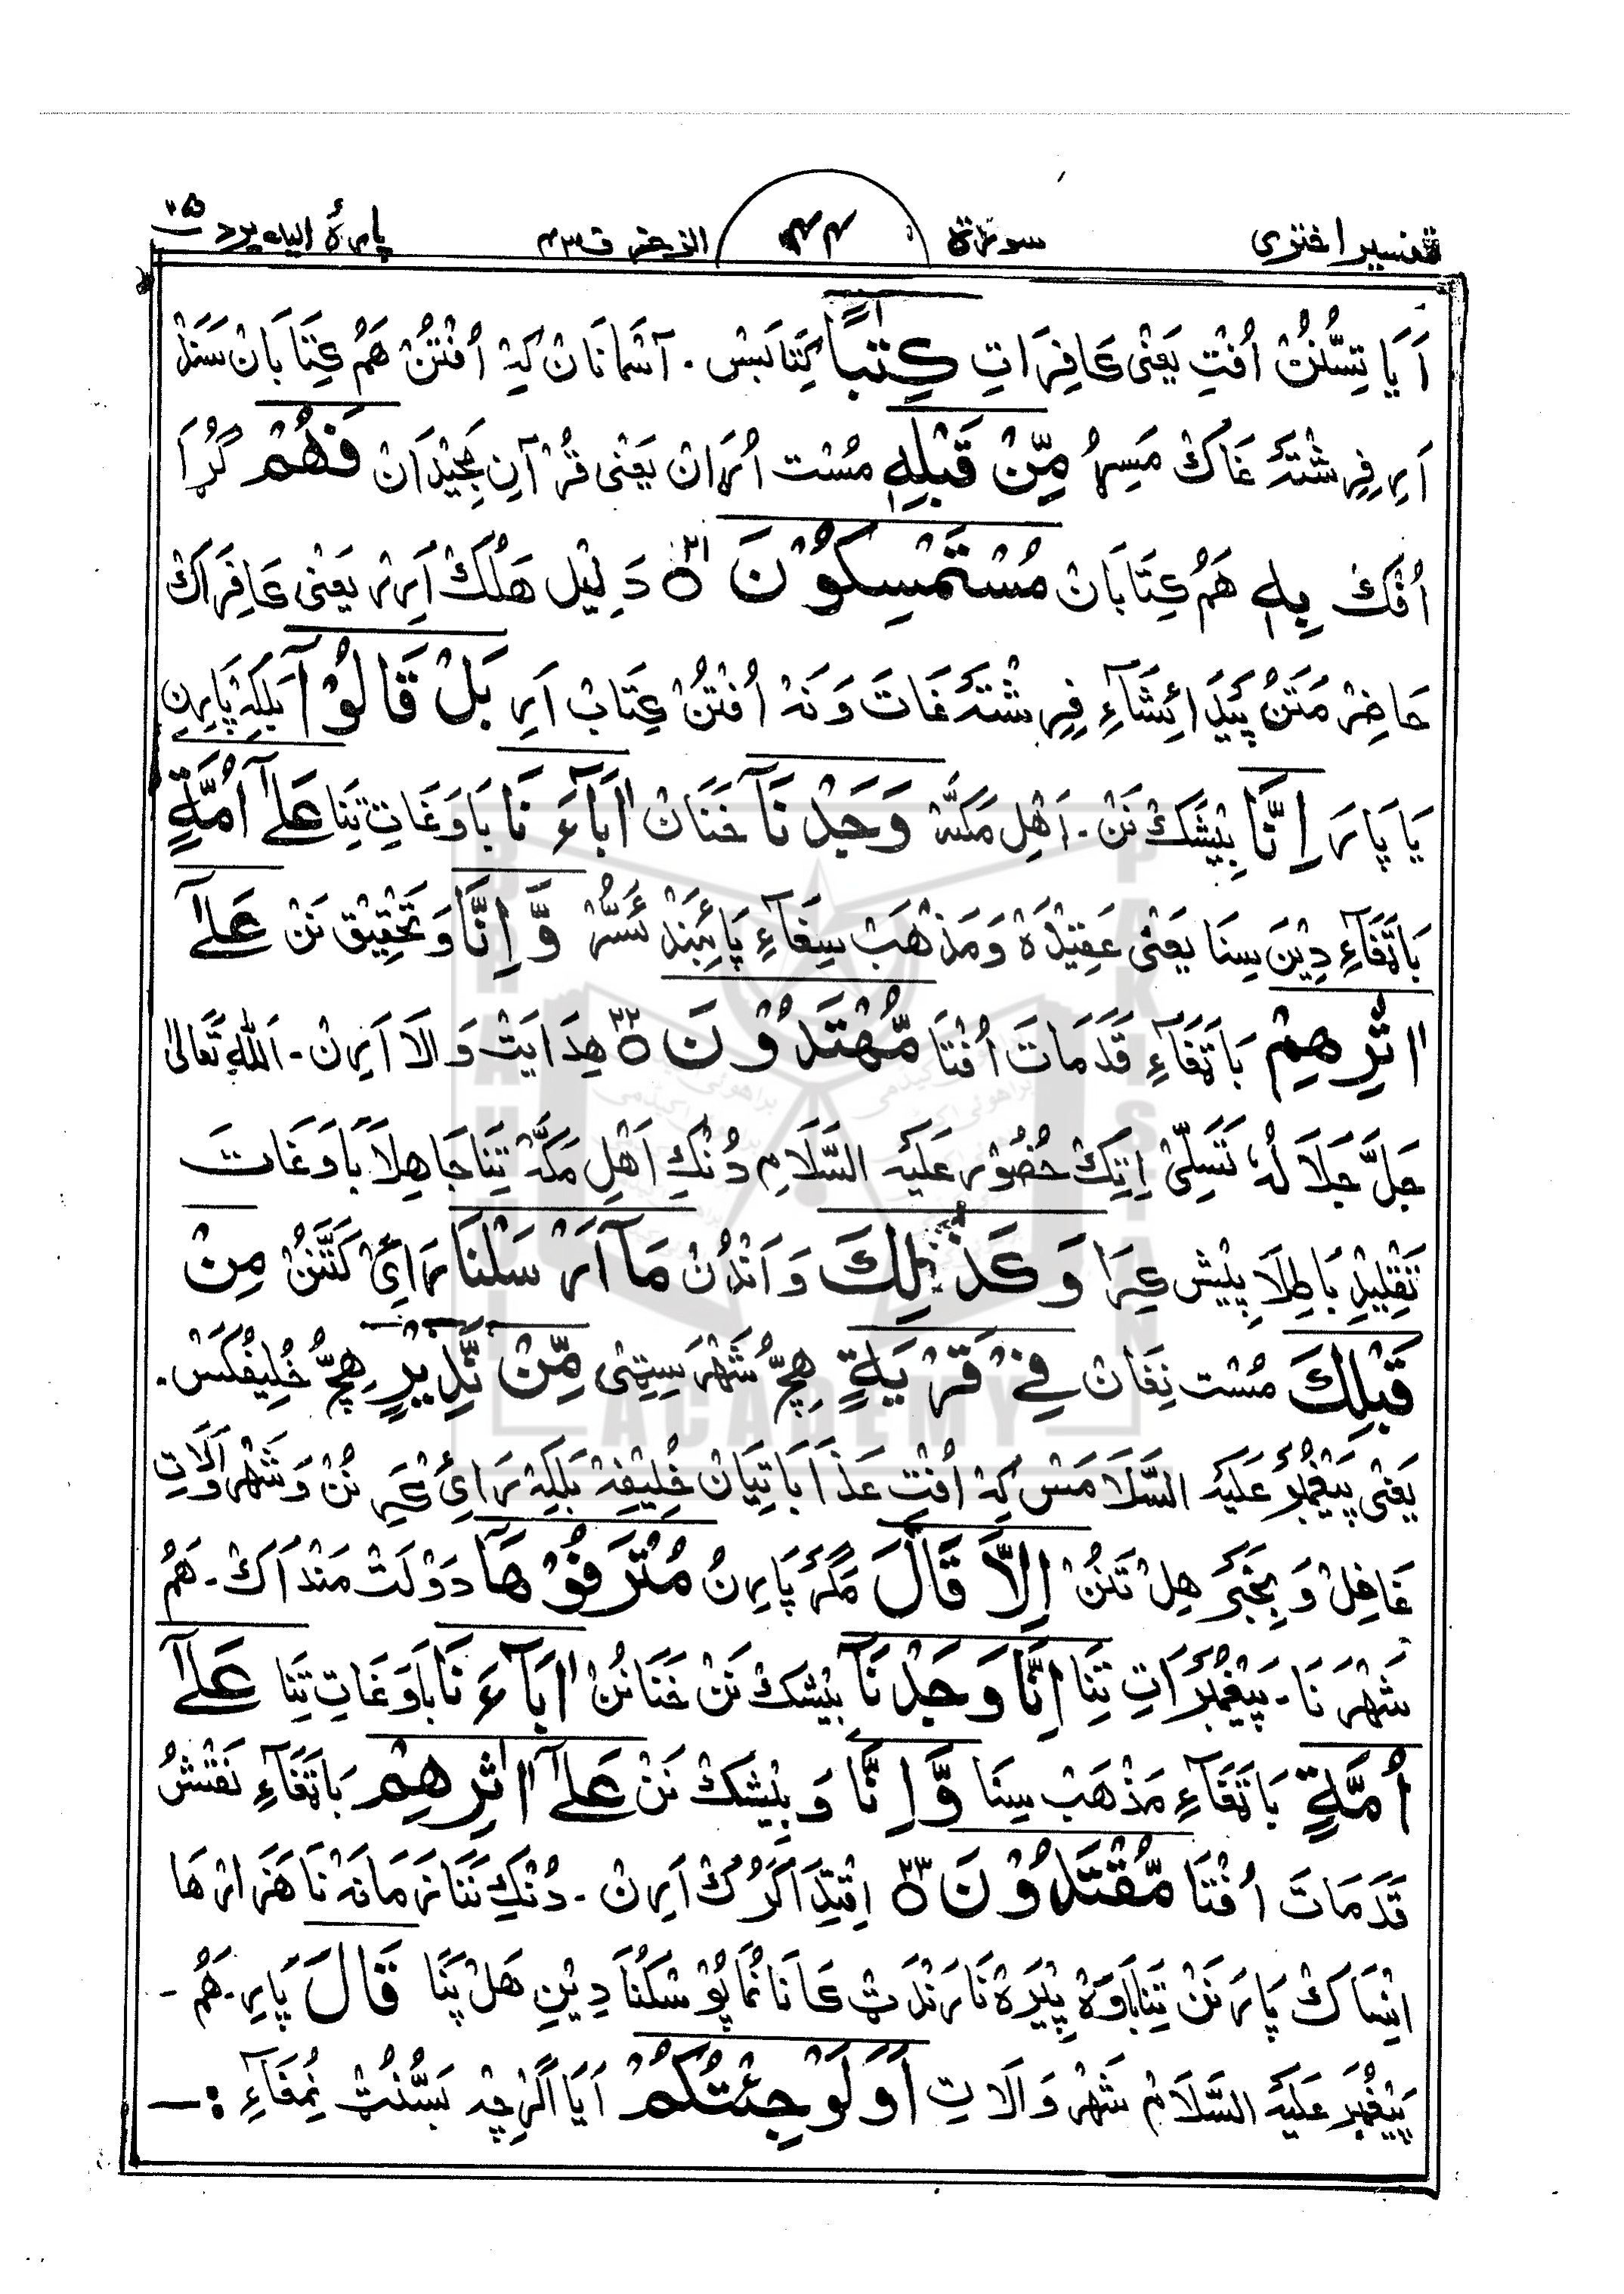 تفسیر اختری سورة ۴۴ الزخرف ۴۳ پارهٔ الیه یرد ۲۵
اَیَا تِسُّنُنْ اُفْتِ یَعْنٖی کَافِرَاتِ کِتٰبًا کِتَابَسْ ۔ آسْمَانَانْ کِہْ اُفْتُنْ ھَمُ کِتَابَانْ سَنَدْ
اَرِ فِرِشْتَہ غَاکْ مَسِرُ مِّنْ قَبْلِهٖ مُسْت اُرَانْ یَعْنٖی قُرْآنِ مَجِیْدَانْ فَهُمْ گُڑَا
اُفْکْ بِهٖ ھَمُ کِتَابَانْ مُسْتَمْسِكُوْنَ ۝۲۱ دَلِیْل ھَلُکْ اَرِرْ یَعْنٖی کَافِرَاکْ
حَاضِرْ مَتَنُ پَیْدَائِشَآءِ فِرِشْتَہ غَاتَ وَنَہْ اُفْتُنْ کِتَابْ اَرِ بَلْ قَالُوْٓا بَلْکِہْ پَارِنِ
یَا پَارَ اِنَّا بِیْشَکْ نَنْ ۔ اَھْلِ مَکَّہْ وَجَدْنَآ خَنَانْ اٰبَآءَنَا بَاوَغَاتِ تِنَا عَلٰٓى اُمَّةٍ
بَاتَّغَآءِ دِیْنَ سِنَا یَعْنٖی عَقِیْدَہْ وَمَذْھَبْ سِغَآءِ پَابَنْدْ وَّ اِنَّا وَتَحْقِیْق نَنْ عَلٰٓى
اٰثٰرِهِمْ بَاتَّغَآءِ قَدَمَاتَ اُفْتَا مُّهْتَدُوْنَ ۝۲۲ ھِدَایَتْ وَالَا اَرِنْ ۔ اَللہ تَعَالٰی
جَلَّ جَلَالُہٗ تَسَلِّیْ اِتِکْ حُضُوْر عَلَیْہ السَّلَامِ دُنْکِ اَھْلِ مَکَّہْ تِنَا جَاھِلَا بَاوَغَاتَ
تَقْلِیْدِ بَاطِلَا پِیْش کِرَا وَ كَذٰلِكَ وَ اَنْدُنْ مَآ اَرْسَلْنَا رَاھِیْ کَتَّنُنْ مِنْ
قَبْلِكَ مُسْت نِغَانْ فِيْ قَرْيَةٍ ھِچُّ شَھْرَسِتِیْ مِّنْ نَّذِيْرٍ ھِچُّ خُلِیْفُکَسْ ۔
یَعْنٖی پَیْغَمْبَرْ عَلَیْہ السَّلَامَسْ کِہْ اُفْتِ عَذَابَاتِیَانْ خُلِیْفِہْ بَلْکِہْ وَشَھْر وَالَاتِ
غَافِلْ وَ بِخَبَرْ ھِلْ تَنُنْ اِلَّا قَالَ مَگَرْ پَارِنُ مُتْرَفُوْهَآ دَوْلَتْ مَنْدَاکْ ۔ ھَمُ
شَھْرَنَا ۔ پَیْغَمْبَرَاتِ تِنَا اِنَّا وَجَدْنَآ بِیْشَکْ نَنْ خَنَانُنْ اٰبَآءَنَا بَاوَغَاتِ تِنَا عَلٰٓى
اُمَّةٍ بَاتَّغَآءِ مَذْھَبْ سِنَا وَّ اِنَّا وَ بِیْشَکْ نَنْ عَلٰٓى اٰثٰرِهِمْ بَاتَّغَآءِ نَقْشُ
قَدَمَاتَ اُفْتَا مُّقْتَدُوْنَ ۝۲۳ اِقْتِدَا کَرُکْ اَرِنْ ۔ دُنْکِ نَنَا زَمَانَہْ نَا ھَزَارْھَا
اِنْسَاکْ پَارَ نَنْ تِنَا بَاوَہْ پِیْرَہْ نَا رَنْدَٹْ کَانَا نُمَا پُوْسْکُنَا دِیْنِ ھَلْ پَنَا قَالَ پَارِ ۔ ھَمُ ۔
پَیْغَمْبَرْ عَلَیْہ السَّلَامْ شَھْر وَالَاتِ اَوَلَوْ جِئْتُكُمْ اَیَا اَگَرْچِہْ بَسُّنُٹْ نُمَغَآءِ :—
BRAHUI
ACADEMY
PAKISTAN